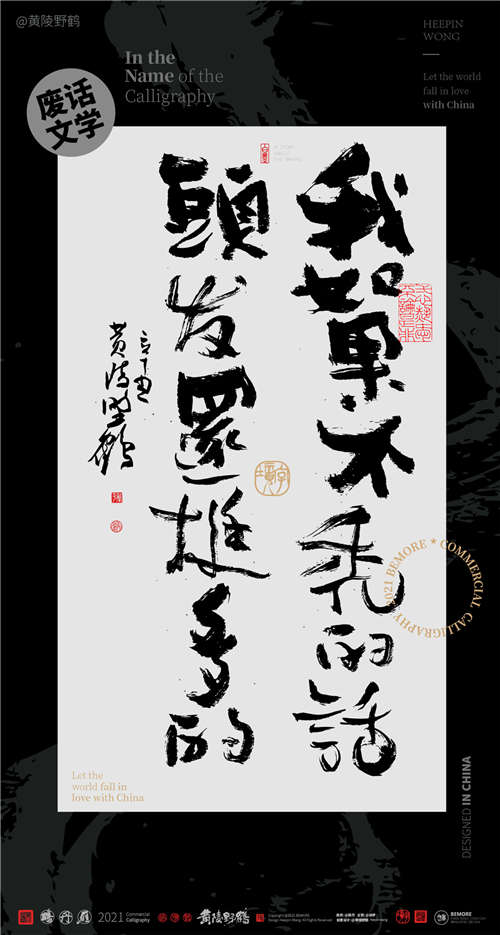 @黄陵野鹤
In the
Name of the
Calligraphy
HEEPIN
WONG
Let the world
fall in love
with China
废话
文学
我如果不秃的話
頭发還挺多的
辛丑
黄陵野鹤
2021 BEMORE ★ COMMERCIAL CALLIGRAPHY
Let the
world fall in
love with China
DESIGNED IN CHINA
2021
Commercial
Calligraphy
黄陵野鹤
BEMORE